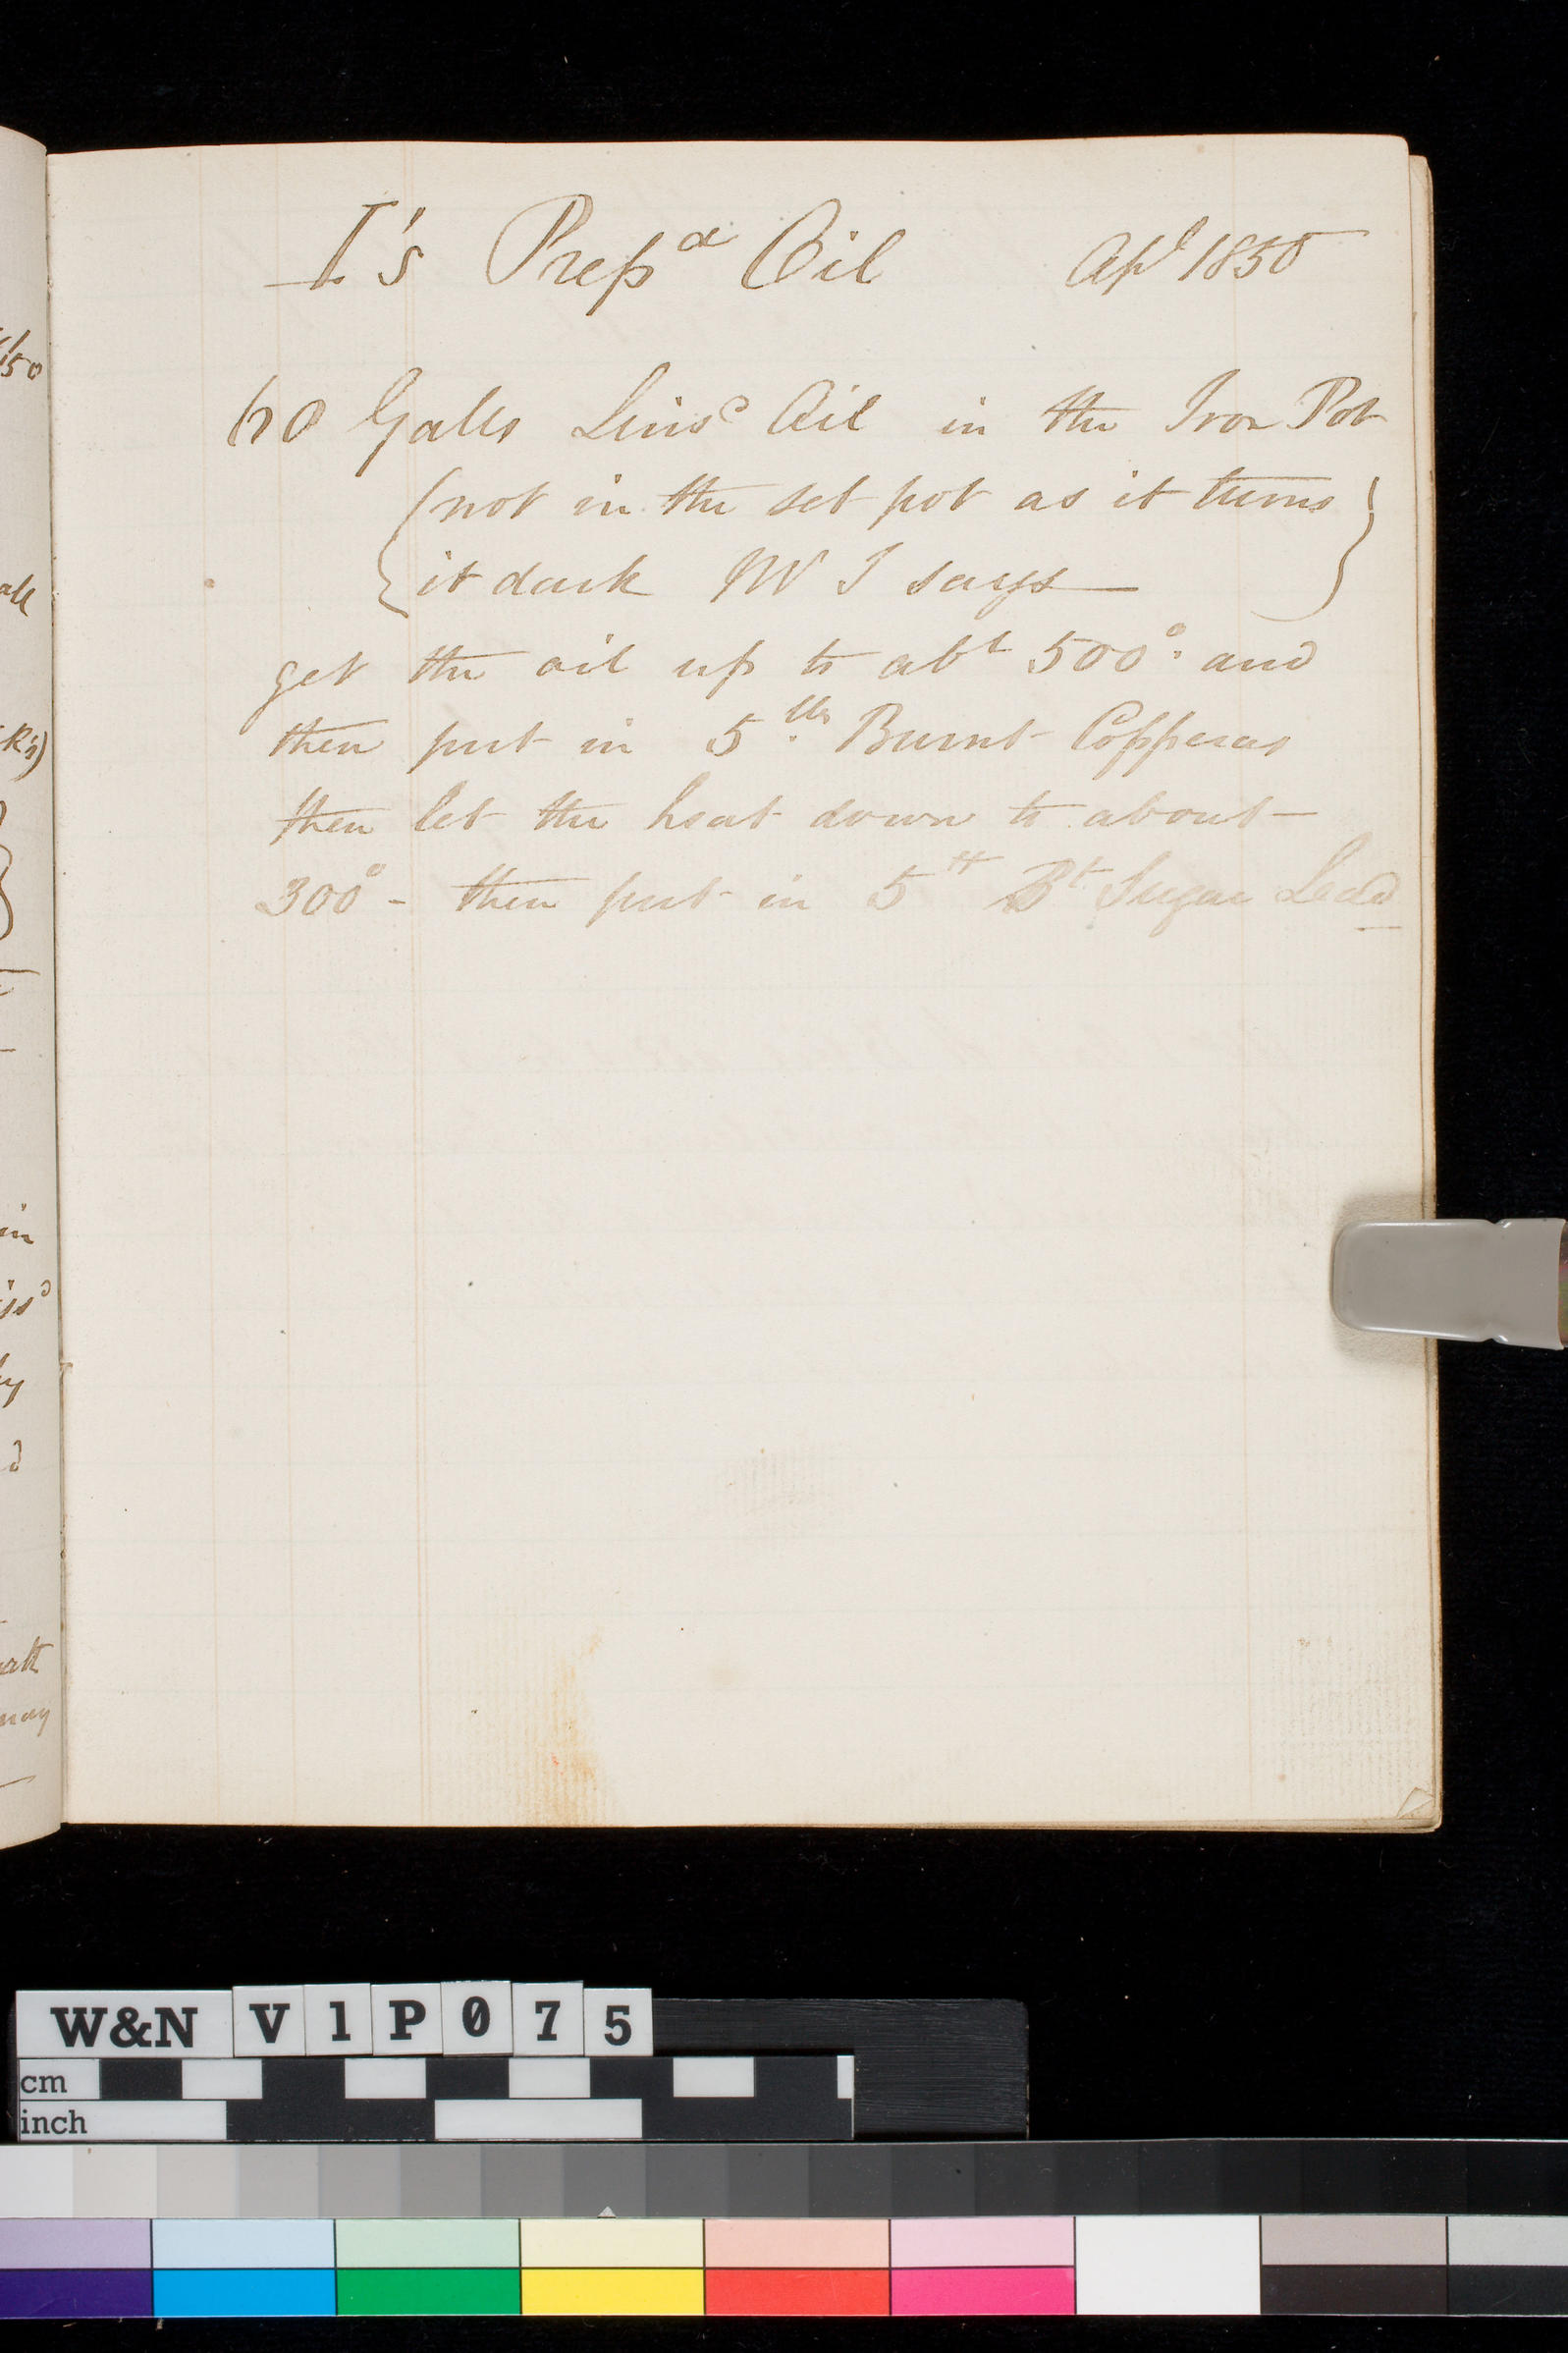 I's Prepd Oil Apl 1850
60 Galls Linsd Oil in the Iron Pot
(not in the set pot as it turns
it dark W I says —)
get the oil up to abt 500° and
then put in 5 lbs Burnt Copperas
then let the heat down to about
300° - then put in 5 lb Bt Sugar Lead
W&N V1P075
cm
inch